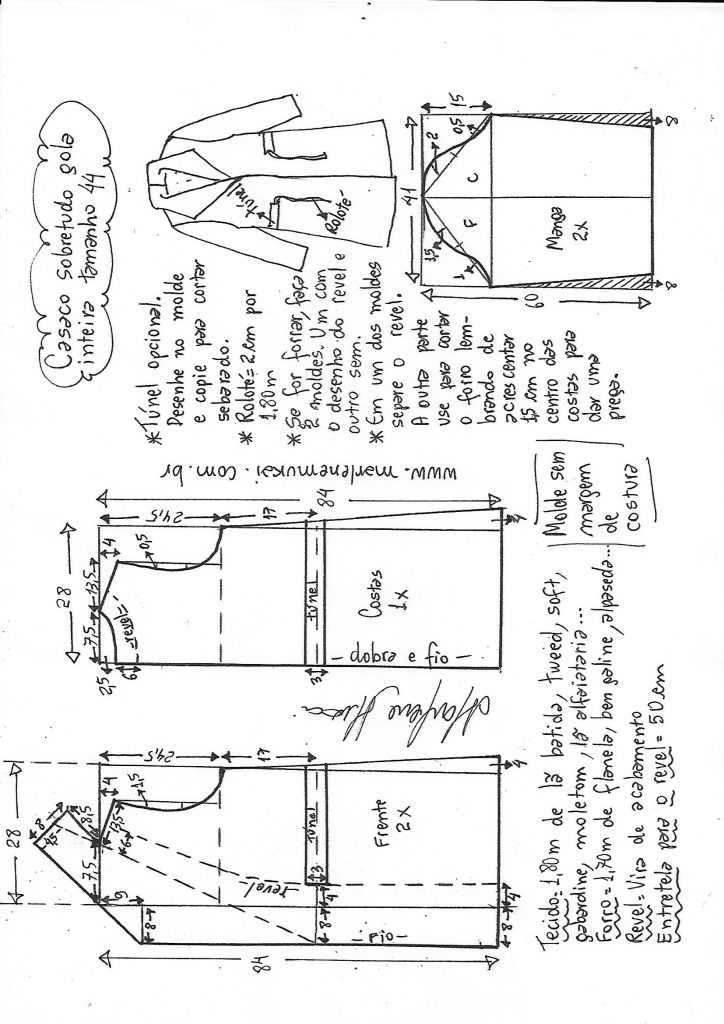 Casaco sobretudo gola
inteira tamanho 44
*Túnel opcional.
Desenhe no molde
e copie para cortar
sebarado.
* Rolotê=2cm por
1,80m
*Se for forrar, faça
2 moldes. Um com
o desenho do revel e
outro sem.
*Em um dos moldes
separe o revel.
A outra parte
use para cortar
o forro lem-
brando de
acrescentar
15 cm no
centro das
costas para
dar uma
prega.
Túnel
Rolotê
41
15
2
0,5
1,5
1
F
C
Manga
2x
60
8
8
www.marlenemukai.com.br
28
7,5
13,5
4
24,5
17
84
2,5
6
revel
0,5
túnel
3
Costas
1x
dobra e fio
4
28
8
8,5
7,5
13,5
4
24,5
17
1,5
6
9
revel
túnel
3
4
8
8
Frente
2x
fio
84
8
4
4
Molde sem
margem
de
costura
Tecido=1,80m de lã batida, tweed, soft,
gabardine, moletom, lã alfaiataria...
Forro=1,70m de flanela, bengaline, alpaseda...
Revel=Vira de acabamento
Entretela para o revel=50cm